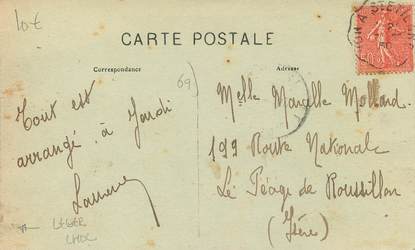 10€
CARTE POSTALE
Correspondance
Adresse
69
Tout est
arrangé, à Jeudi
Melle Marcelle Mollard
199 Route Nationale
Le Péage de Roussillon
(Isère)
LEGER
CHOC